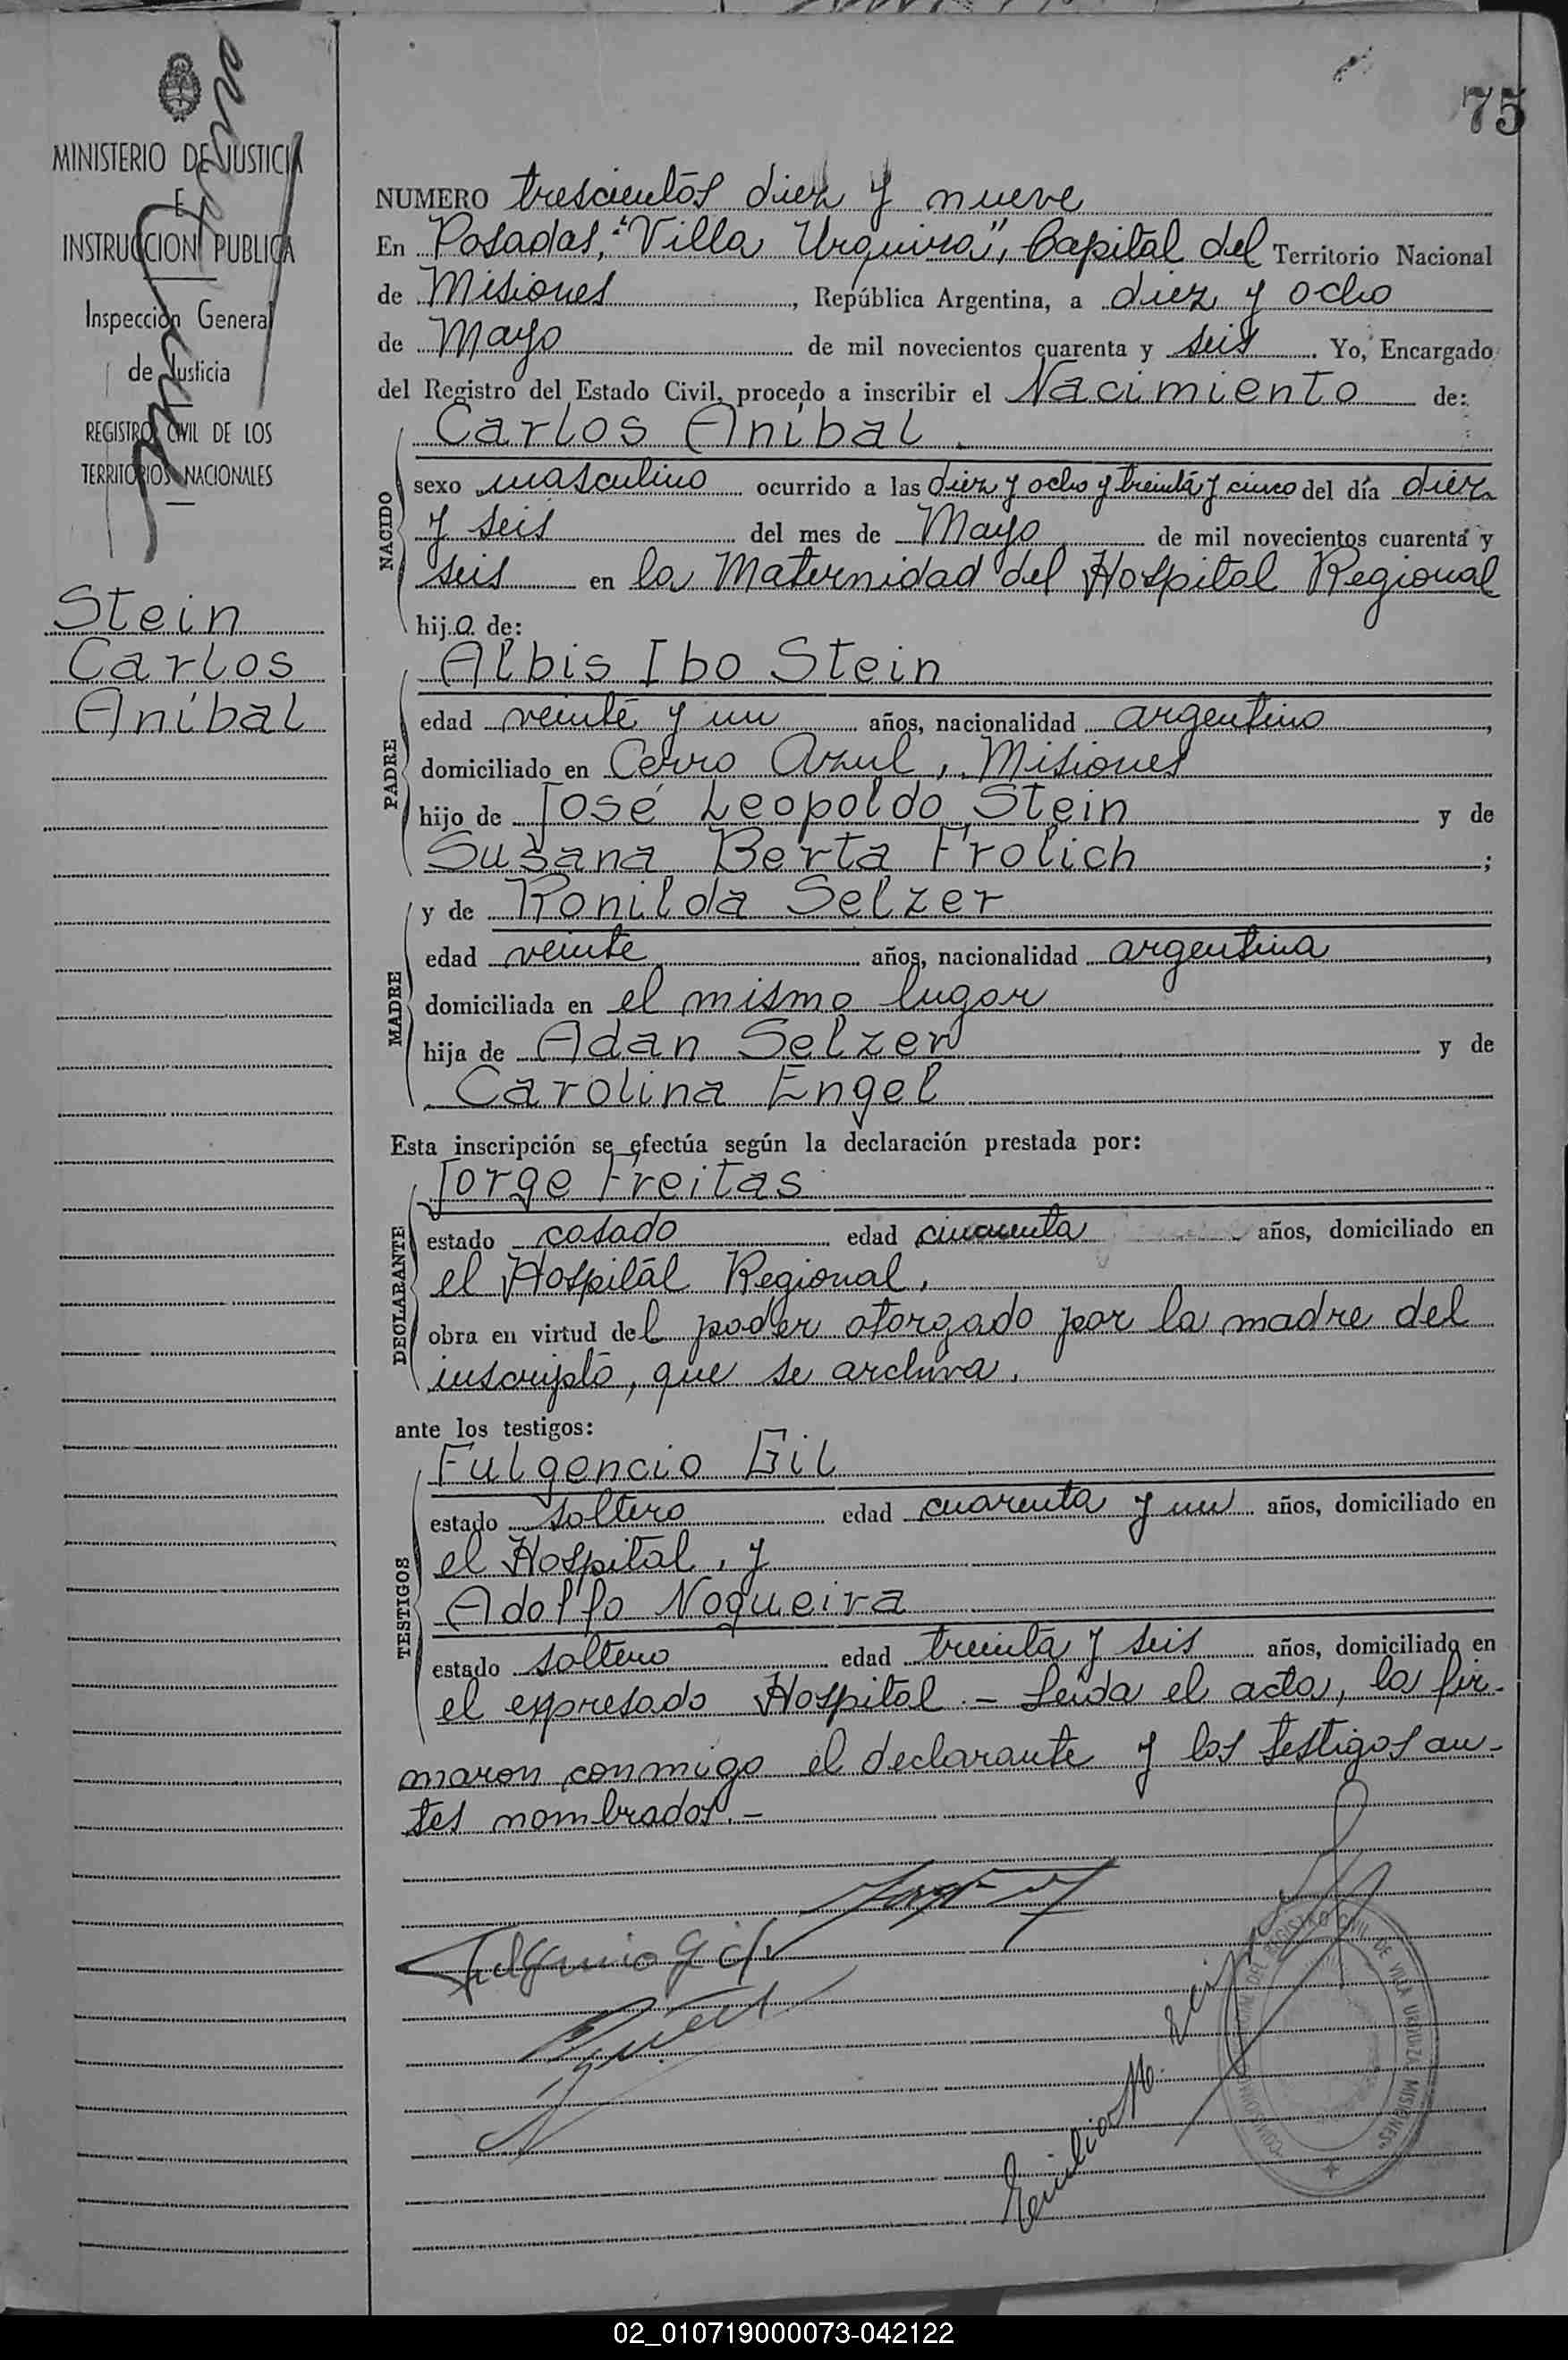 75
MINISTERIO DE JUSTICIA
E
INSTRUCCION PUBLICA
Inspección General
de Justicia
REGISTRO CIVIL DE LOS
TERRITORIOS NACIONALES
Stein
Carlos
Aníbal
NUMERO trescientos diez y nueve
En Posadas, "Villa Urquiza", Capital del Territorio Nacional
de Misiones, República Argentina, a diez y ocho
de Mayo de mil novecientos cuarenta y seis. Yo, Encargado
del Registro del Estado Civil, procedo a inscribir el Nacimiento de:
NACIDO
Carlos Aníbal
sexo masculino ocurrido a las diez y ocho y treinta y cinco del día diez
y seis del mes de Mayo de mil novecientos cuarenta y
seis en la Maternidad del Hospital Regional
hijo de:
PADRE
Albis Ibo Stein
edad veinte y un años, nacionalidad argentino,
domiciliado en Cerro Azul, Misiones
hijo de José Leopoldo Stein y de
Susana Berta Frolich;
MADRE
y de Ronilda Selzer
edad veinte años, nacionalidad argentina,
domiciliada en el mismo lugar
hija de Adan Selzer y de
Carolina Engel
Esta inscripción se efectúa según la declaración prestada por:
DECLARANTE
Jorge Freitas
estado casado edad cincuenta años, domiciliado en
el Hospital Regional.
obra en virtud del poder otorgado por la madre del
inscripto, que se archiva.
ante los testigos:
TESTIGOS
Fulgencio Gil
estado soltero edad cuarenta y un años, domiciliado en
el Hospital, y
Adolfo Nogueira
estado soltero edad treinta y seis años, domiciliado en
el expresado Hospital.- Leída el acta, la fir-
maron conmigo el declarante y los testigos an-
tes nombrados.-
Fulgencio Gil
Emilio M.
REGISTRO CIVIL DE VILLA URQUIZA MISIONES
02_010719000073-042122